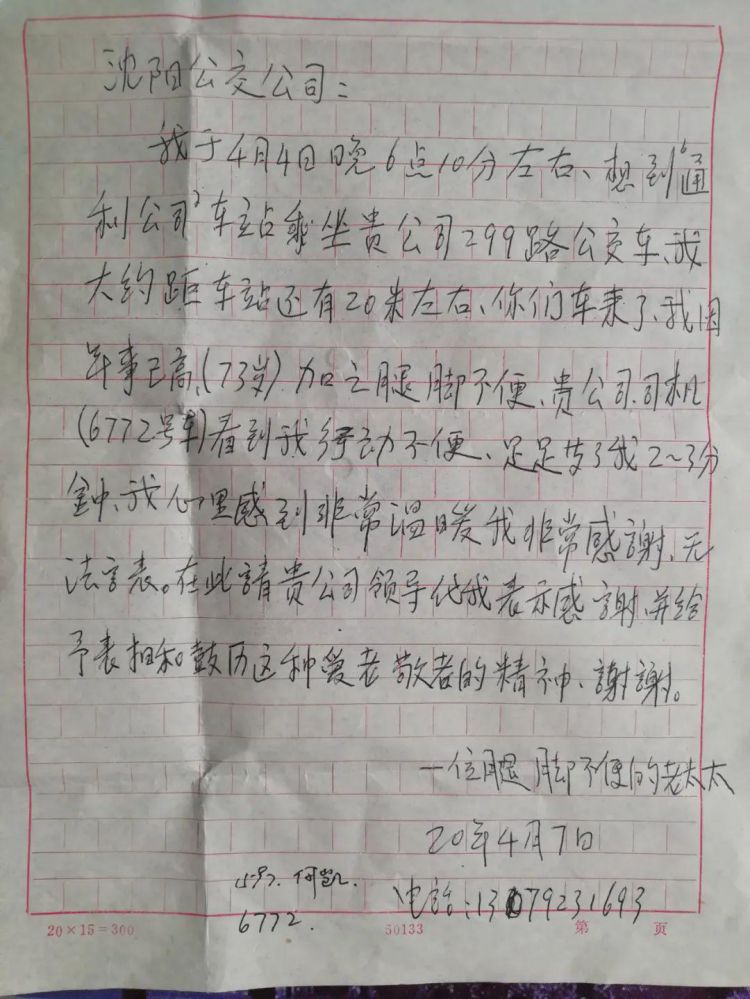 沈阳公交公司：
我于4月4日晚6点10分左右、想到“通
利公司”车站乘坐贵公司299路公交车、我
大约距车站还有20米左右、你们车来了、我因
年事已高、(73岁) 加之腿脚不便、贵公司、司机
(6772号车)看到我行动不便、足足等了我2~3分
鈡、我心里感到非常温暖我非常感謝、无
法言表。在此請贵公司领导代我表示感謝、并给
予表扬和鼓历这种爱老敬老的精神、謝謝。
一位腿脚不便的老太太
20年4月7日
何凯.
电话:13079231693
6772.
20×15=300
50133
第 页